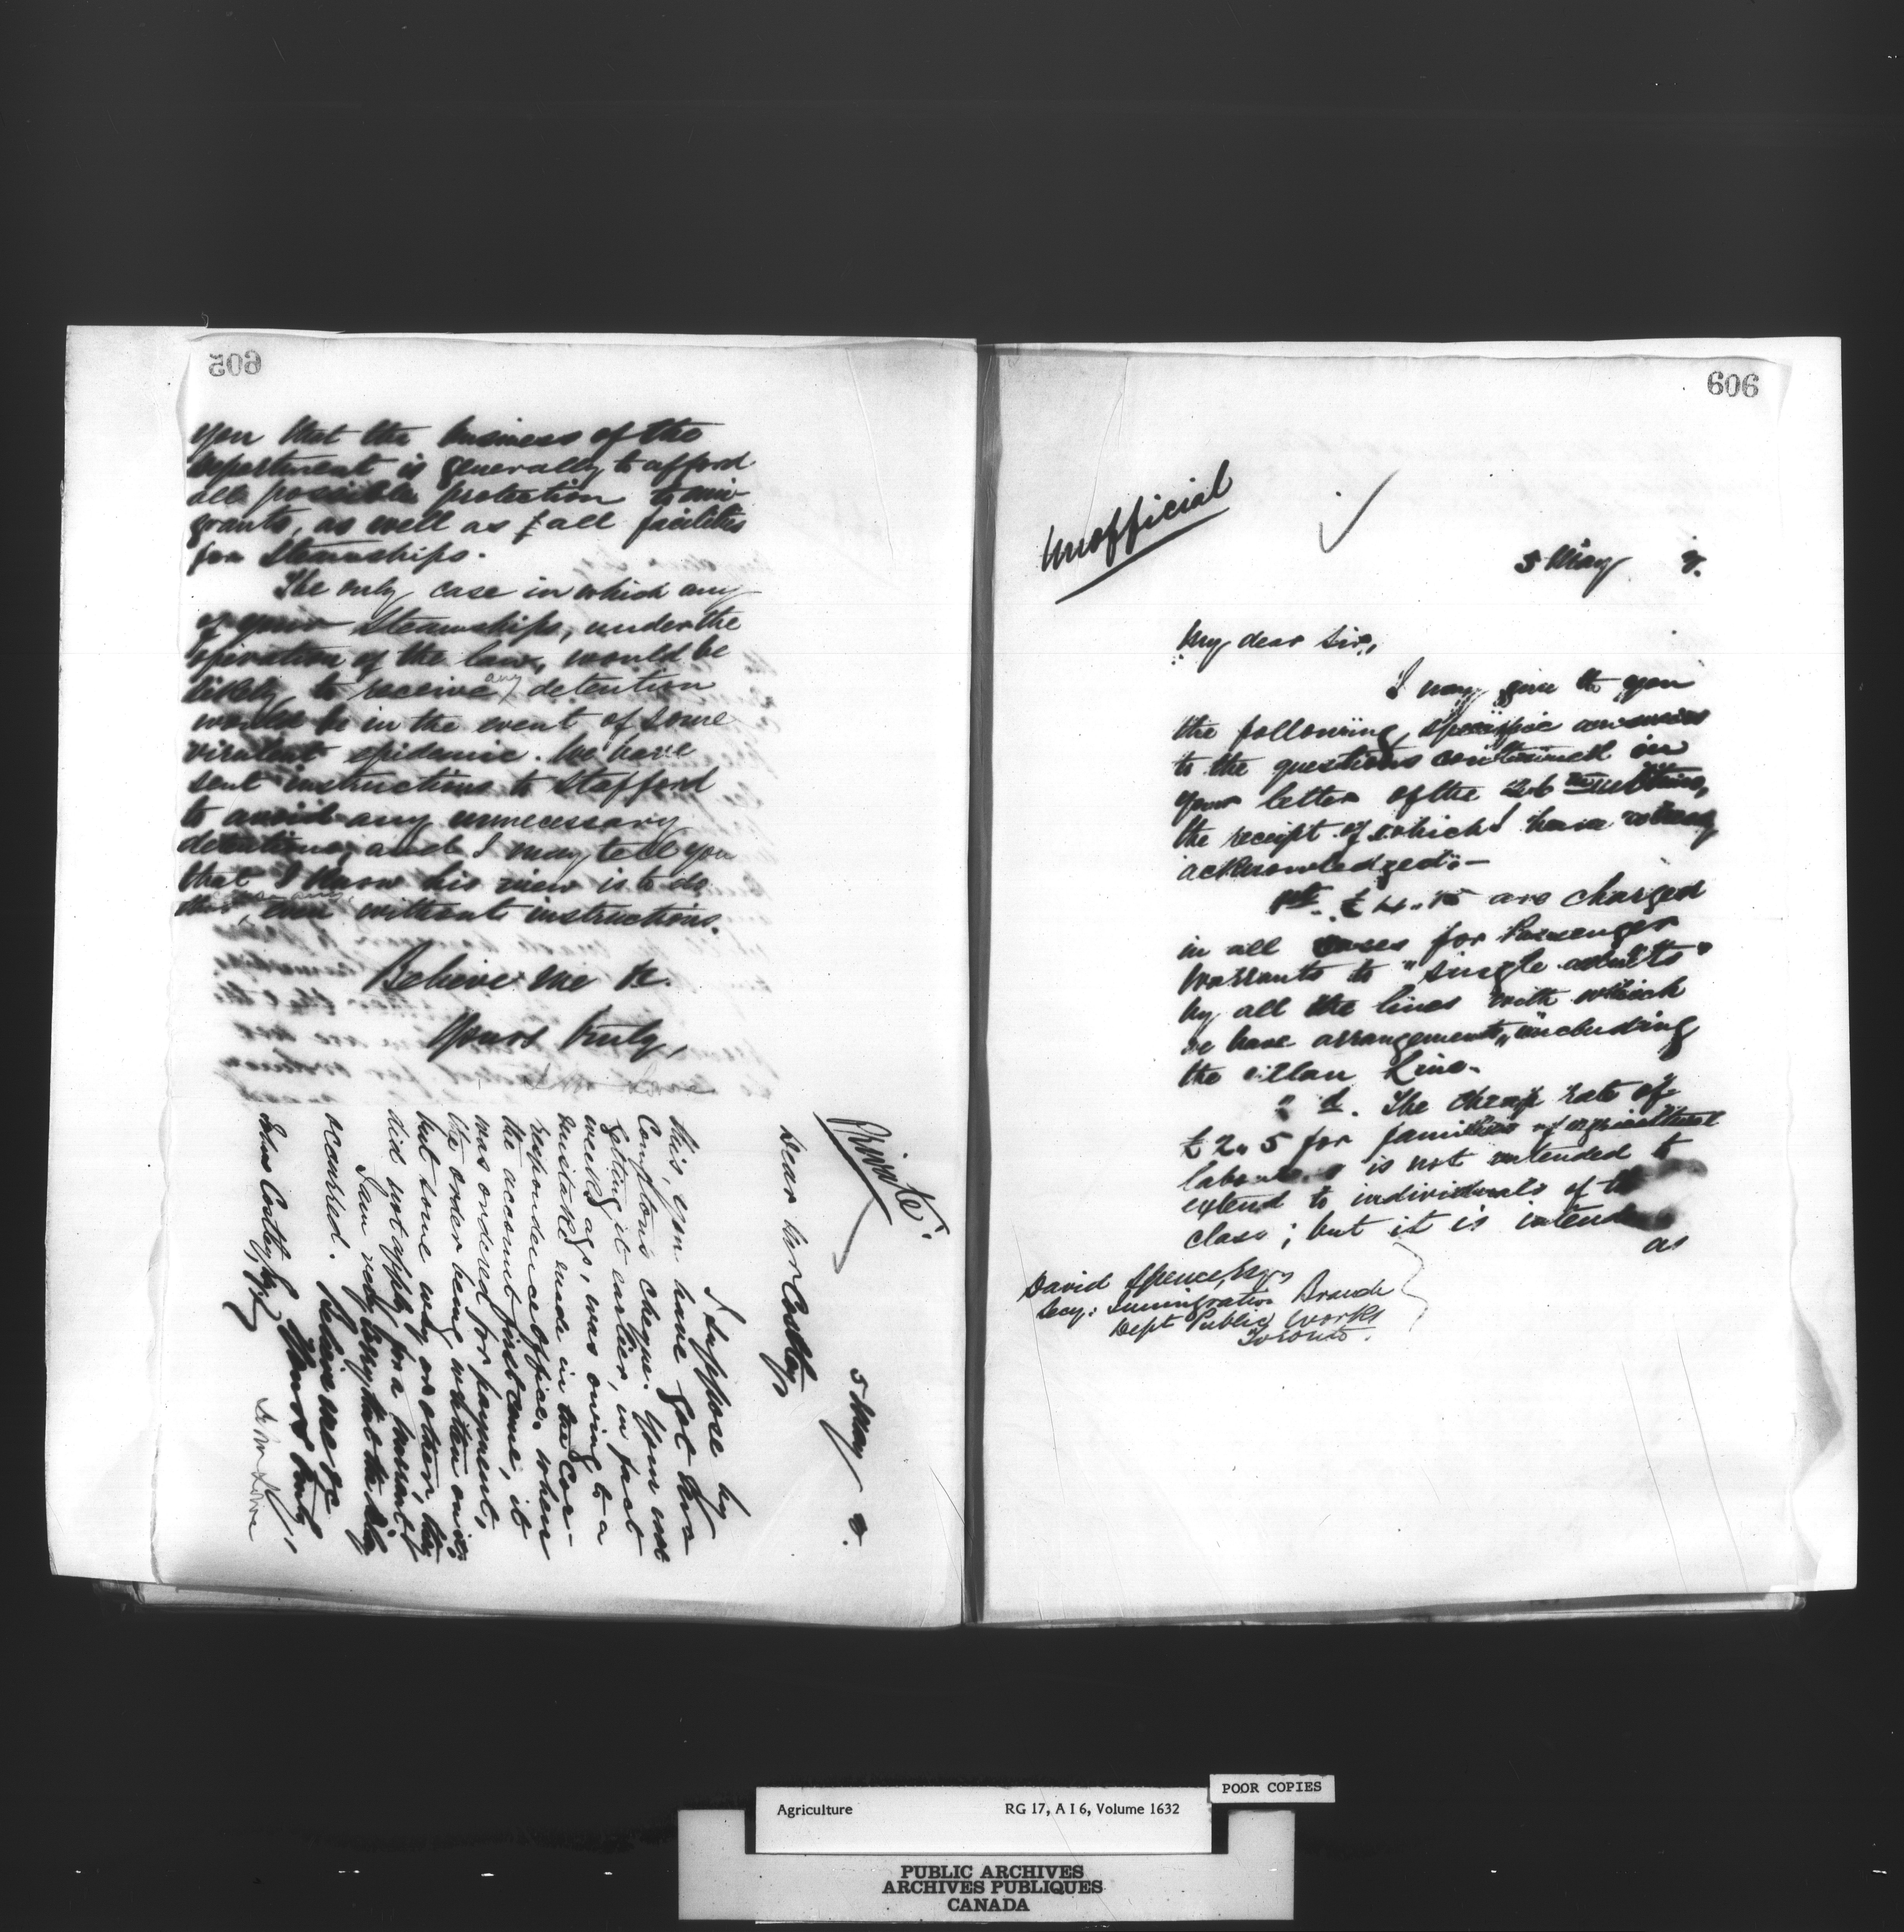 605
you that the business of the
department is generally to afford
all possible protection to emi-
grants, as well as all facilities
for Steamships.
The only case in which any
of your Steamships, under the
operation of the law, would be
likely to receive any detention
would be in the event of some
virulent epidemic. We have
sent instructions to Stafford
to avoid any unnecessary
detention, and I may tell you
that I know his view is to do
this, even without instructions.
Believe me &c.
Yours truly,
Private
5 May
Dear Mr Costley,
I suppose by
this, you have got the
Comptons cheque. Your not
getting it earlier, in fact
weeks ago, was owing to a
mistake made in the Cor-
respondence Office. When
the account first came, it
was ordered for payment,
the order being written on it;
but some way or other, they
did not apply for a warrant
I am very sorry that the delay
occurred. Believe me &c
Yours truly,
John Costley, Esq
606
Unofficial
5 May 9.
My dear Sir,
I may give to you
the following specific answers
to the questions contained in
your letter of the 26
the receipt of which I have
acknowledged:—
1st. £4.15 are charged
in all cases for Passenger
Warrants to "single adults"
by all the lines with which
we have arrangements, including
the Allan Line.
" 2. The cheap rate of
£2.5 for families of agricultural
labourers is not intended to
extend to individuals of the
class; but it is intended
as
David Spence, Esq
Secy: Immigration Branch
Dept Public Works
Toronto.
Agriculture RG 17, A I 6, Volume 1632
POOR COPIES
PUBLIC ARCHIVES
ARCHIVES PUBLIQUES
CANADA